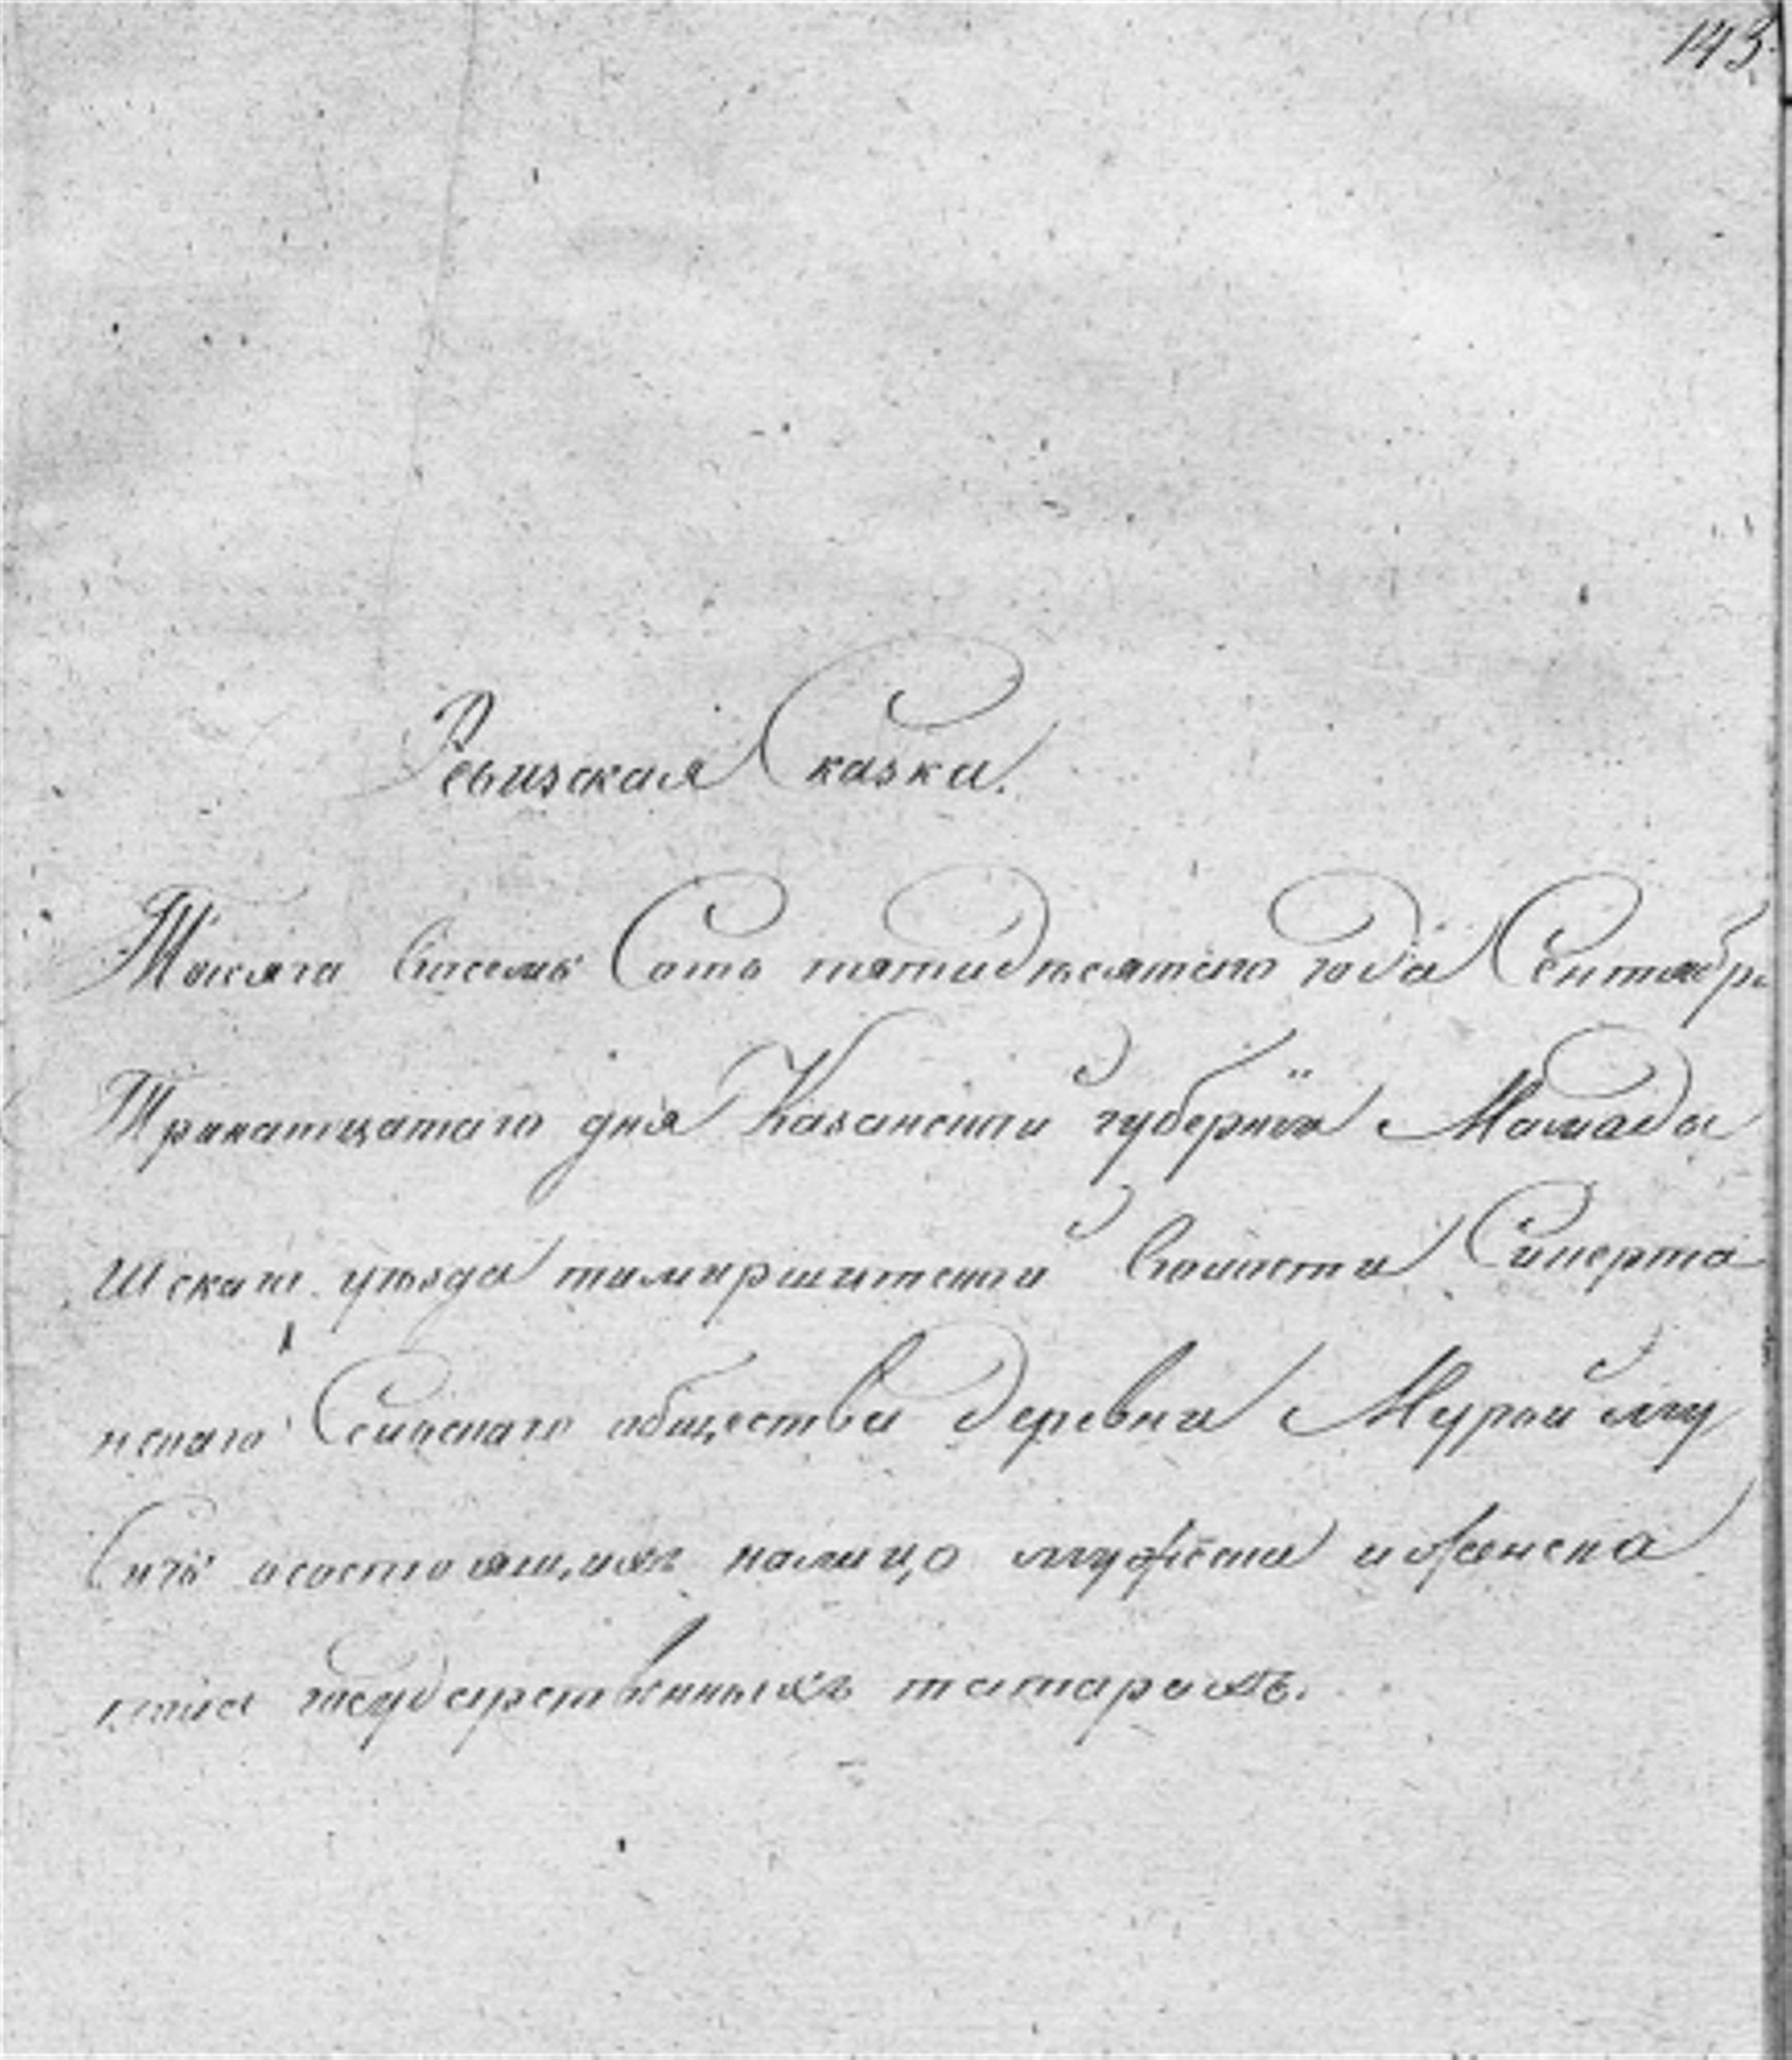 143.
Ревизская Сказка.
Тысяча восемь Сотъ пятидесятаго года Сентябр
Тринатцатаго дня Казанской губернiи Мамады
шскаго уезда волости
скаго Сельскаго общества Деревни
осостоящихъ налицо мужеска иженска
пола государственныхъ татарахъ.